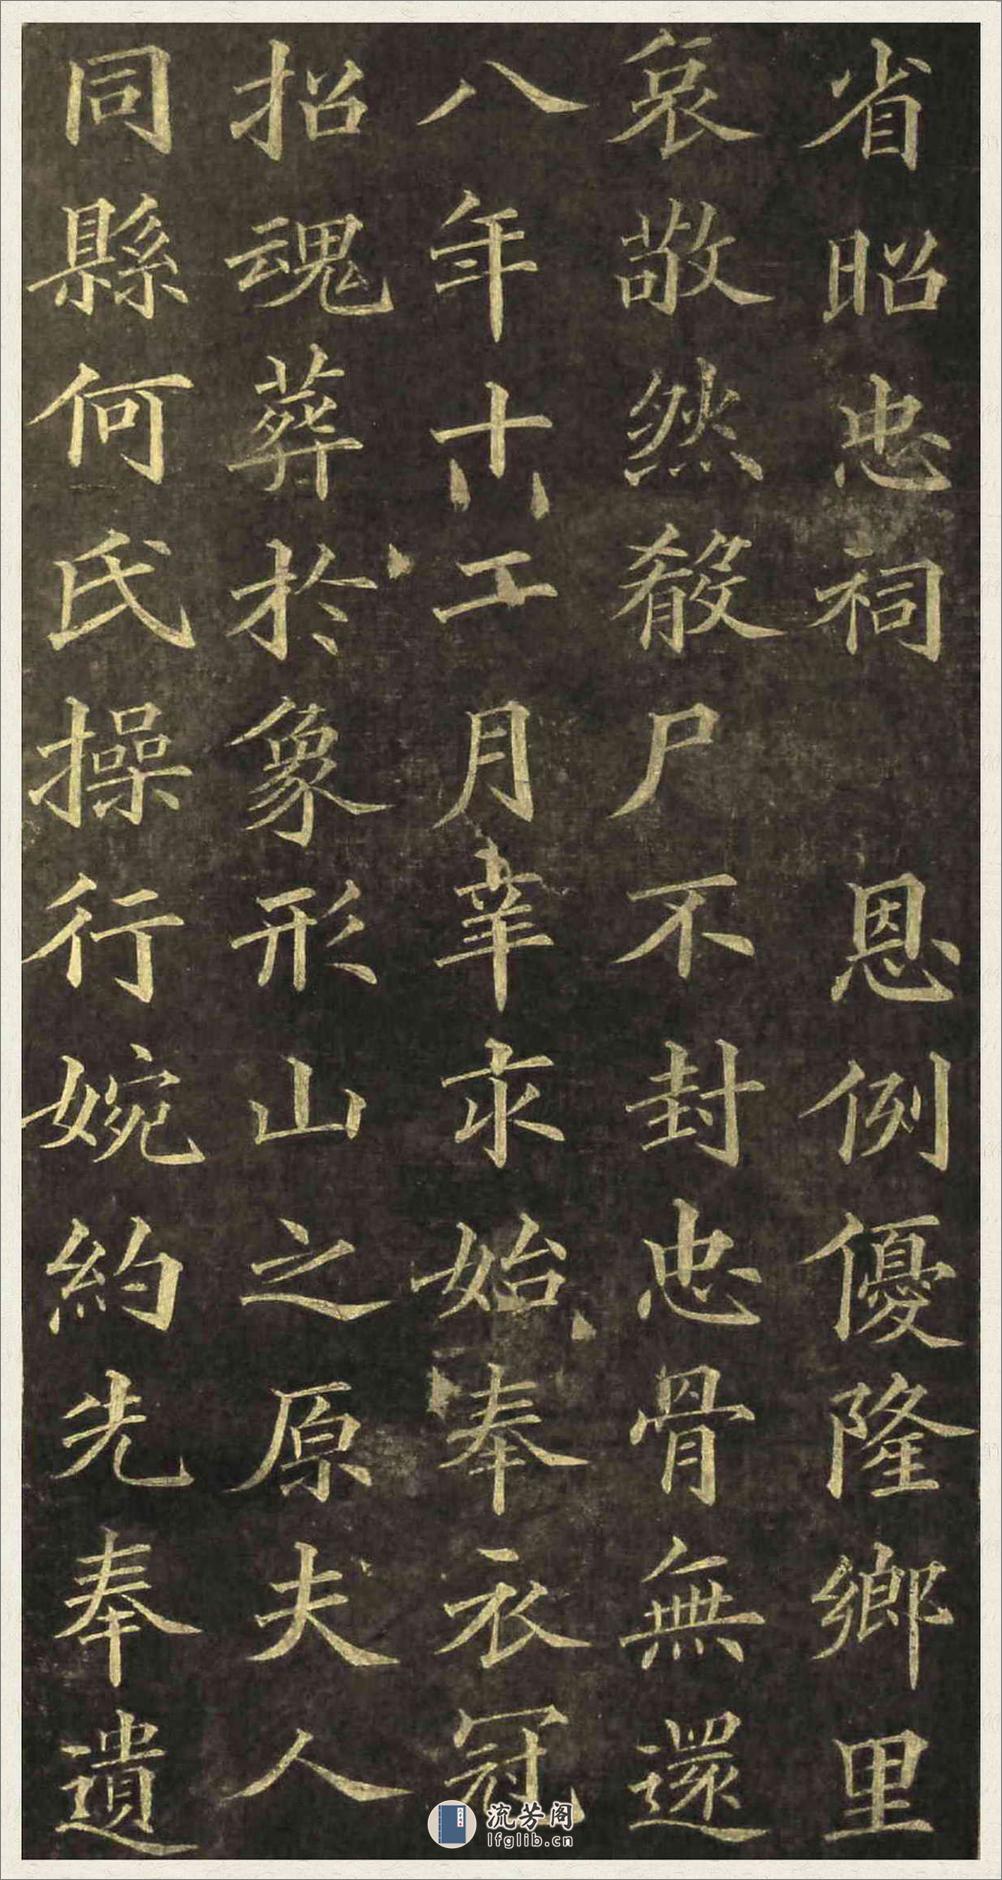 省昭忠祠　恩例優隆鄉里
哀敬然殽尸不封忠骨無還
八年十六工月幸求始奉衣冠
招魂葬於象形山之原夫人
同縣何氏操行婉約先奉遺
流芳阁
lfglib.cn